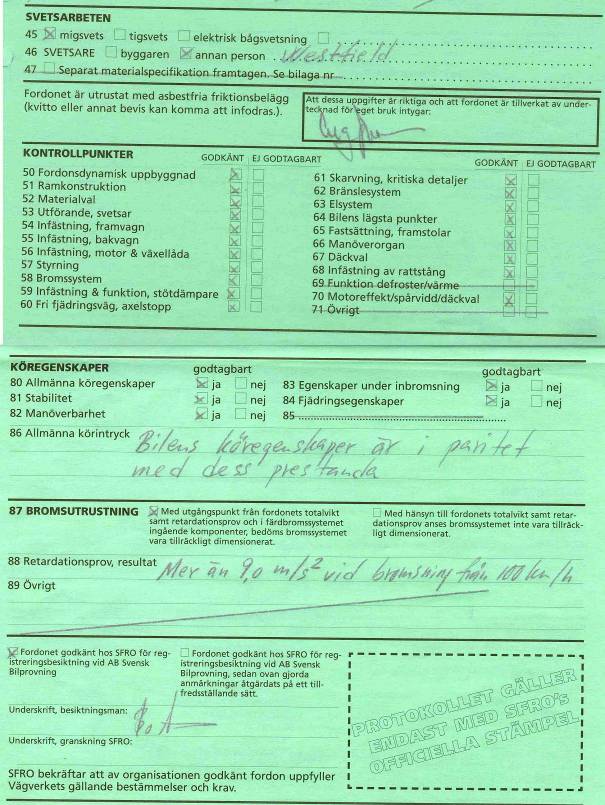 SVETSARBETEN
45 migsvets tigsvets elektrisk bågsvetsning
46 SVETSARE byggaren annan person Westfield
47 Separat materialspecifikation framtagen. Se bilaga nr
Fordonet är utrustat med asbestfria friktionsbelägg
(kvitto eller annat bevis kan komma att infodras.).
Att dessa uppgifter är riktiga och att fordonet är tillverkat av under-
tecknad för eget bruk intygar:
KONTROLLPUNKTER GODKÄNT EJ GODTAGBART
50 Fordonsdynamisk uppbyggnad
51 Ramkonstruktion
52 Materialval
53 Utförande, svetsar
54 Infästning, framvagn
55 Infästning, bakvagn
56 Infästning, motor & växellåda
57 Styrning
58 Bromssystem
59 Infästning & funktion, stötdämpare
60 Fri fjädringsväg, axelstopp
GODKÄNT EJ GODTAGBART
61 Skarvning, kritiska detaljer
62 Bränslesystem
63 Elsystem
64 Bilens lägsta punkter
65 Fastsättning, framstolar
66 Manöverorgan
67 Däckval
68 Infästning av rattstång
69 Funktion defroster/värme
70 Motoreffekt/spårvidd/däckval
71 Övrigt
KÖREGENSKAPER godtagbart godtagbart
80 Allmänna köregenskaper ja nej 83 Egenskaper under inbromsning ja nej
81 Stabilitet ja nej 84 Fjädringsegenskaper ja nej
82 Manöverbarhet ja nej 85
86 Allmänna körintryck Bilens köregenskaper är i paritet
med dess prestanda
87 BROMSUTRUSTNING
Med utgångspunkt från fordonets totalvikt
samt retardationsprov och i färdbromssystemet
ingående komponenter, bedöms bromssystemet
vara tillräckligt dimensionerat.
Med hänsyn till fordonets totalvikt samt retar-
dationsprov anses bromssystemet inte vara tillräck-
ligt dimensionerat.
88 Retardationsprov, resultat Mer än 9,0 m/s² vid bromsning från 100 km/h
89 Övrigt
Fordonet godkänt hos SFRO för reg-
istreringsbesiktning vid AB Svensk
Bilprovning
Fordonet godkänt hos SFRO för reg-
istreringsbesiktning vid AB Svensk
Bilprovning, sedan ovan gjorda
anmärkningar åtgärdats på ett till-
fredsställande sätt.
Underskrift, besiktningsman:
Underskrift, granskning SFRO:
PROTOKOLLET GÄLLER
ENDAST MED SFRO's
OFFICIELLA STÄMPEL
SFRO bekräftar att av organisationen godkänt fordon uppfyller
Vägverkets gällande bestämmelser och krav.